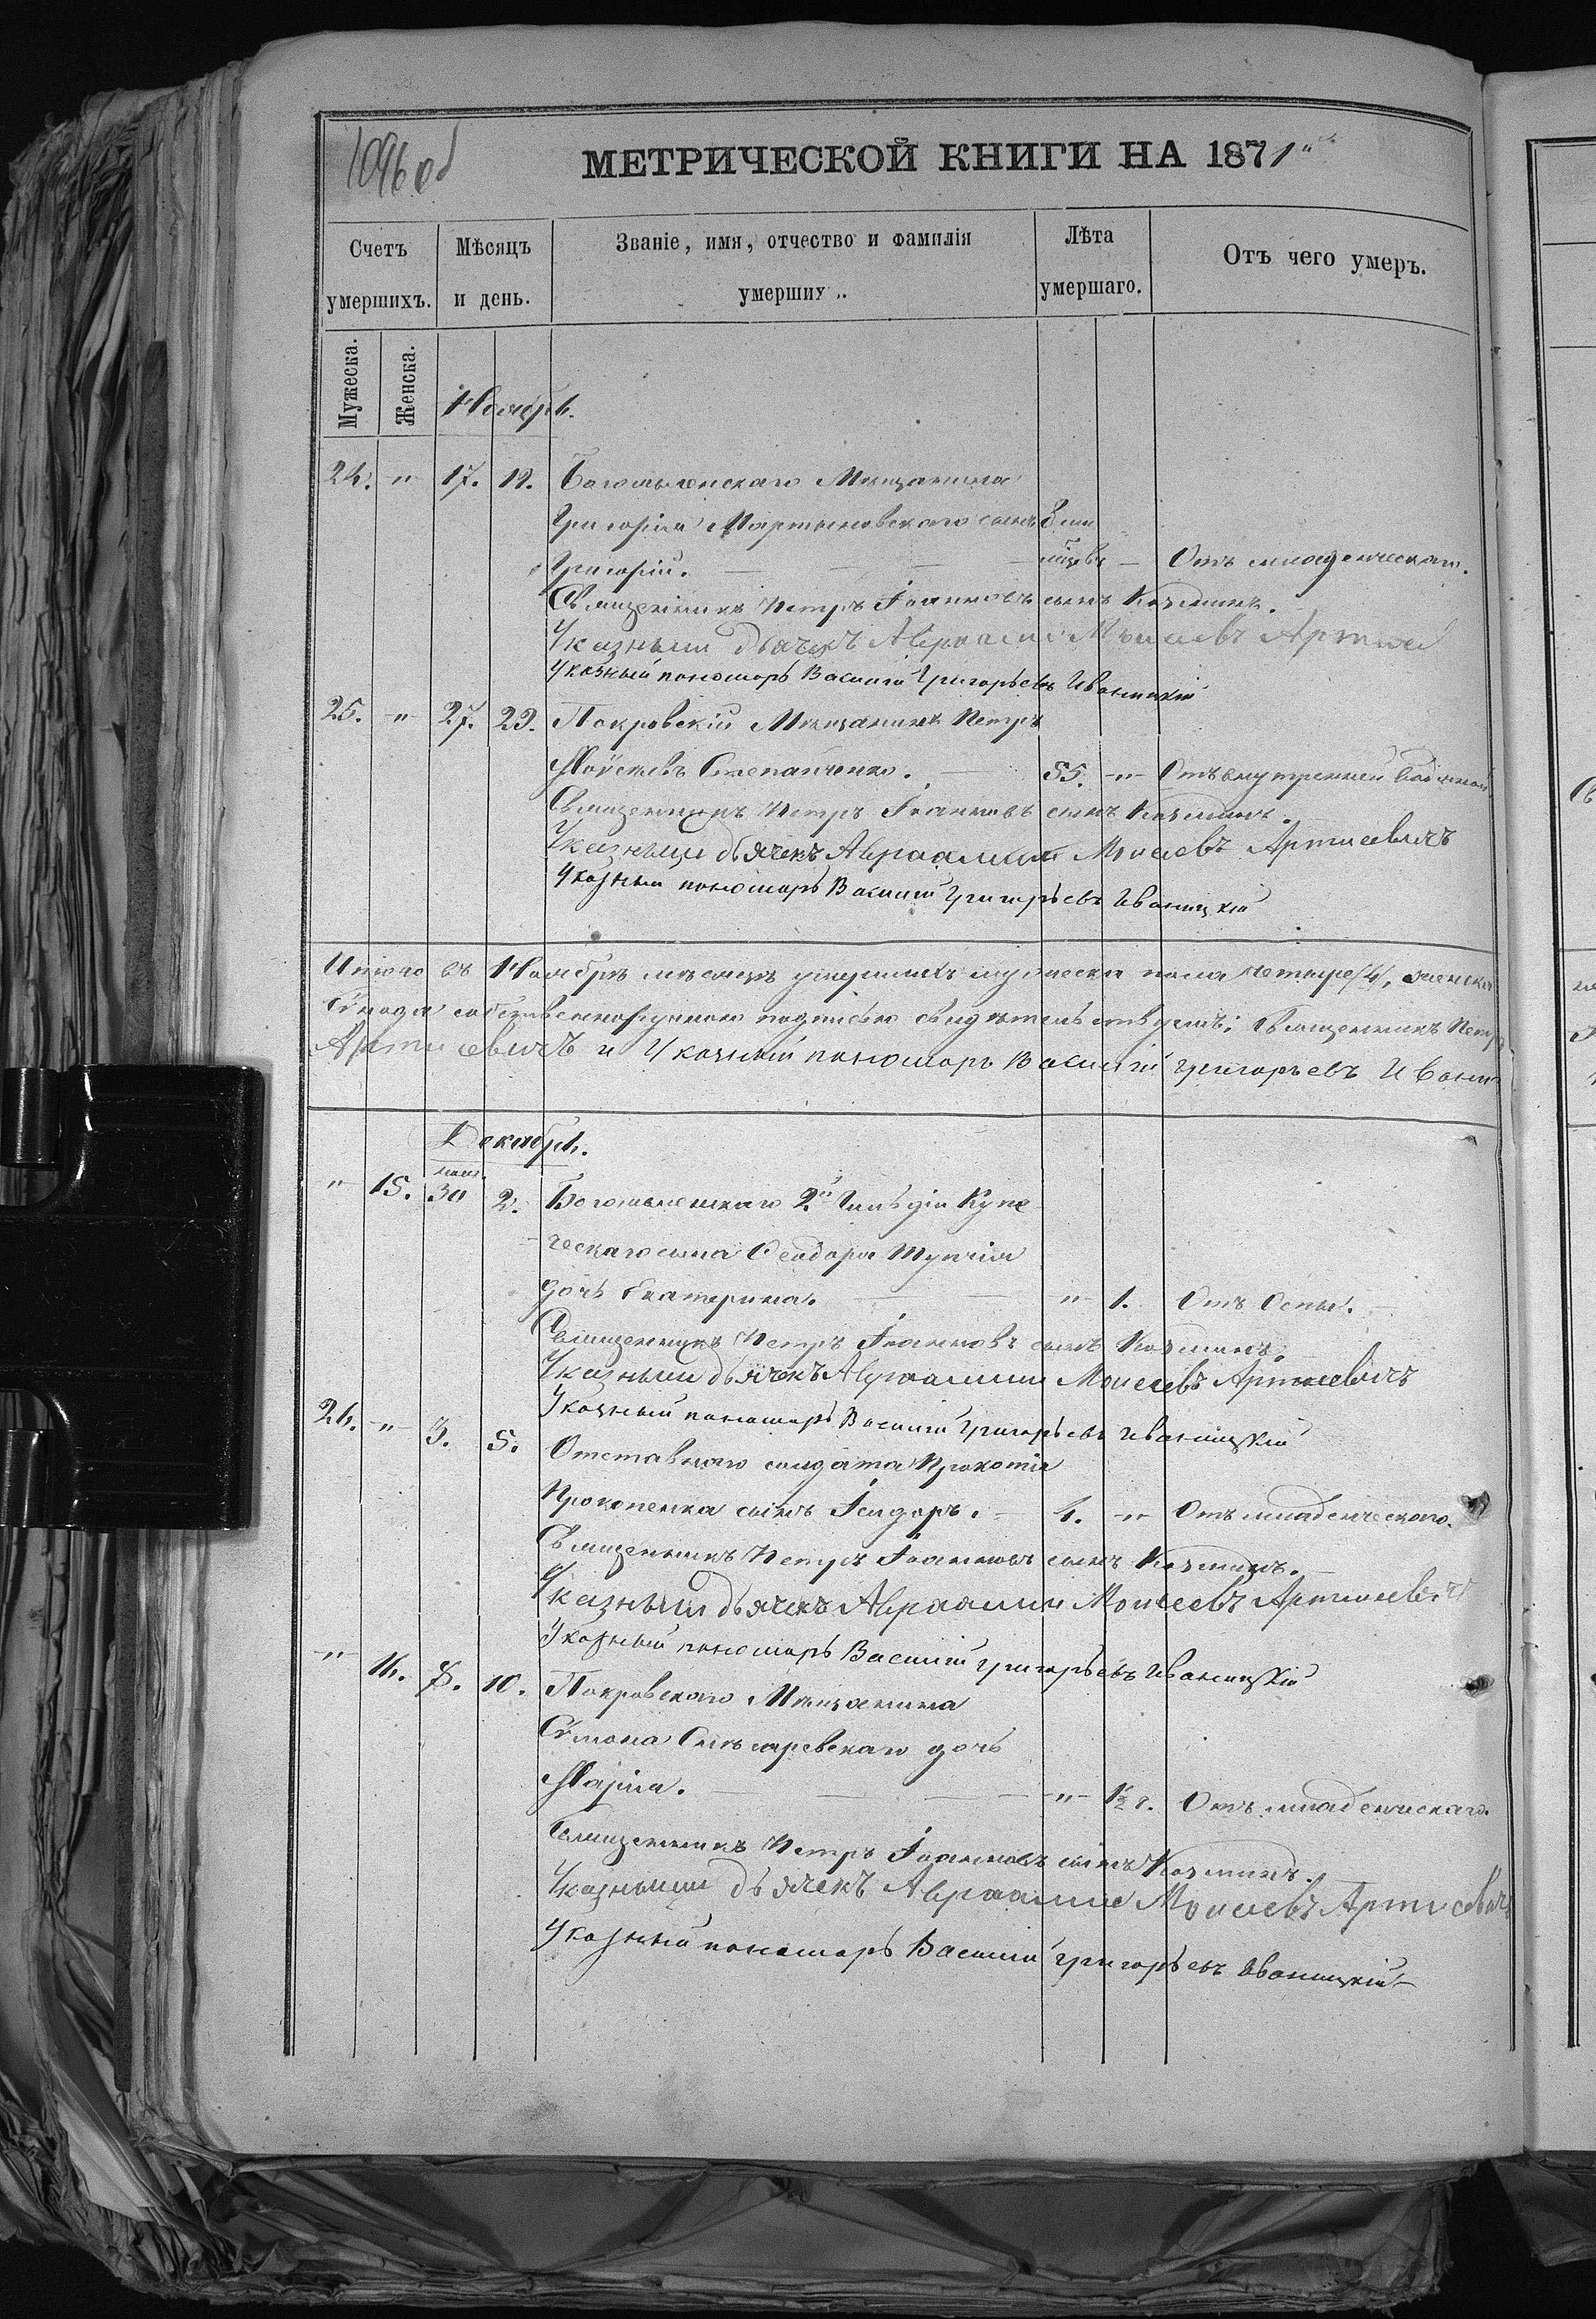 1096 об
МЕТРИЧЕСКОЙ КНИГИ НА 1871
Счетъ умершихъ.
Мѣсяцъ и день.
Званіе, имя, отчество и фамилія умерших
Лѣта умершаго.
Отъ чего умеръ.
Мужеска.
Женска.
Ноябрь.
24. " 17. 19. Мѣщанина
Григорія Мартыновскаго сынъ 8 ми
Григорій. мѣсяцевъ — Отъ младенческаго.
Священникъ Петръ Іоанновъ сынъ
Указный дьячекъ Авраамій Моисеевъ
Указный пономарь Василій Григорьевъ Иваницкій
25. " 27. 29. Покровскій Мѣщанинъ Петръ
Моѵсеевъ Степанченко. 55. " Отъ внутренней болезни
Священникъ Петръ Іоанновъ сынъ
Указный дьячекъ Авраамій Моисеевъ Артисевичъ
Указный пономарь Василій Григорьевъ Иваницкій
Итого въ Ноябрѣ мѣсяцѣ умершихъ мужеска пола четыре /4/, женска
собственноручною подписью свидѣтельствуемъ: Священникъ Петръ
Артисевичъ и Указный пономарь Василій Григорьевъ Ивани
Декабрь.
" 15. нояб. 30 2. 2й Гильдіи Купе
ческаго сына Ѳеодора
дочь Екатерина. " 1. Отъ Оспы.
Священникъ Петръ Іоанновъ сынъ
Указный дьячекъ Авраамій Моисеевъ Артисевичъ
Указный пономарь Василій Григорьевъ Иваницкій
26. " 3. 5. Отставнаго солдата Прокопія
Прокопенка сынъ Ісидоръ. 4. " Отъ младенческаго.
Священникъ Петръ Іоанновъ сынъ
Указный дьячекъ Авраамій Моисеевъ Артисевичъ
Указный пономарь Василій Григорьевъ Иваницкій
" 16. 8. 10. Покровскаго Мѣщанина
Сѵмона дочь
Марія. " 1½ г. Отъ младенческаго.
Священникъ Петръ Іоанновъ сынъ
Указный дьячекъ Авраамій Моисеевъ Артисевичъ
Указный пономарь Василій Григорьевъ Иваницкій